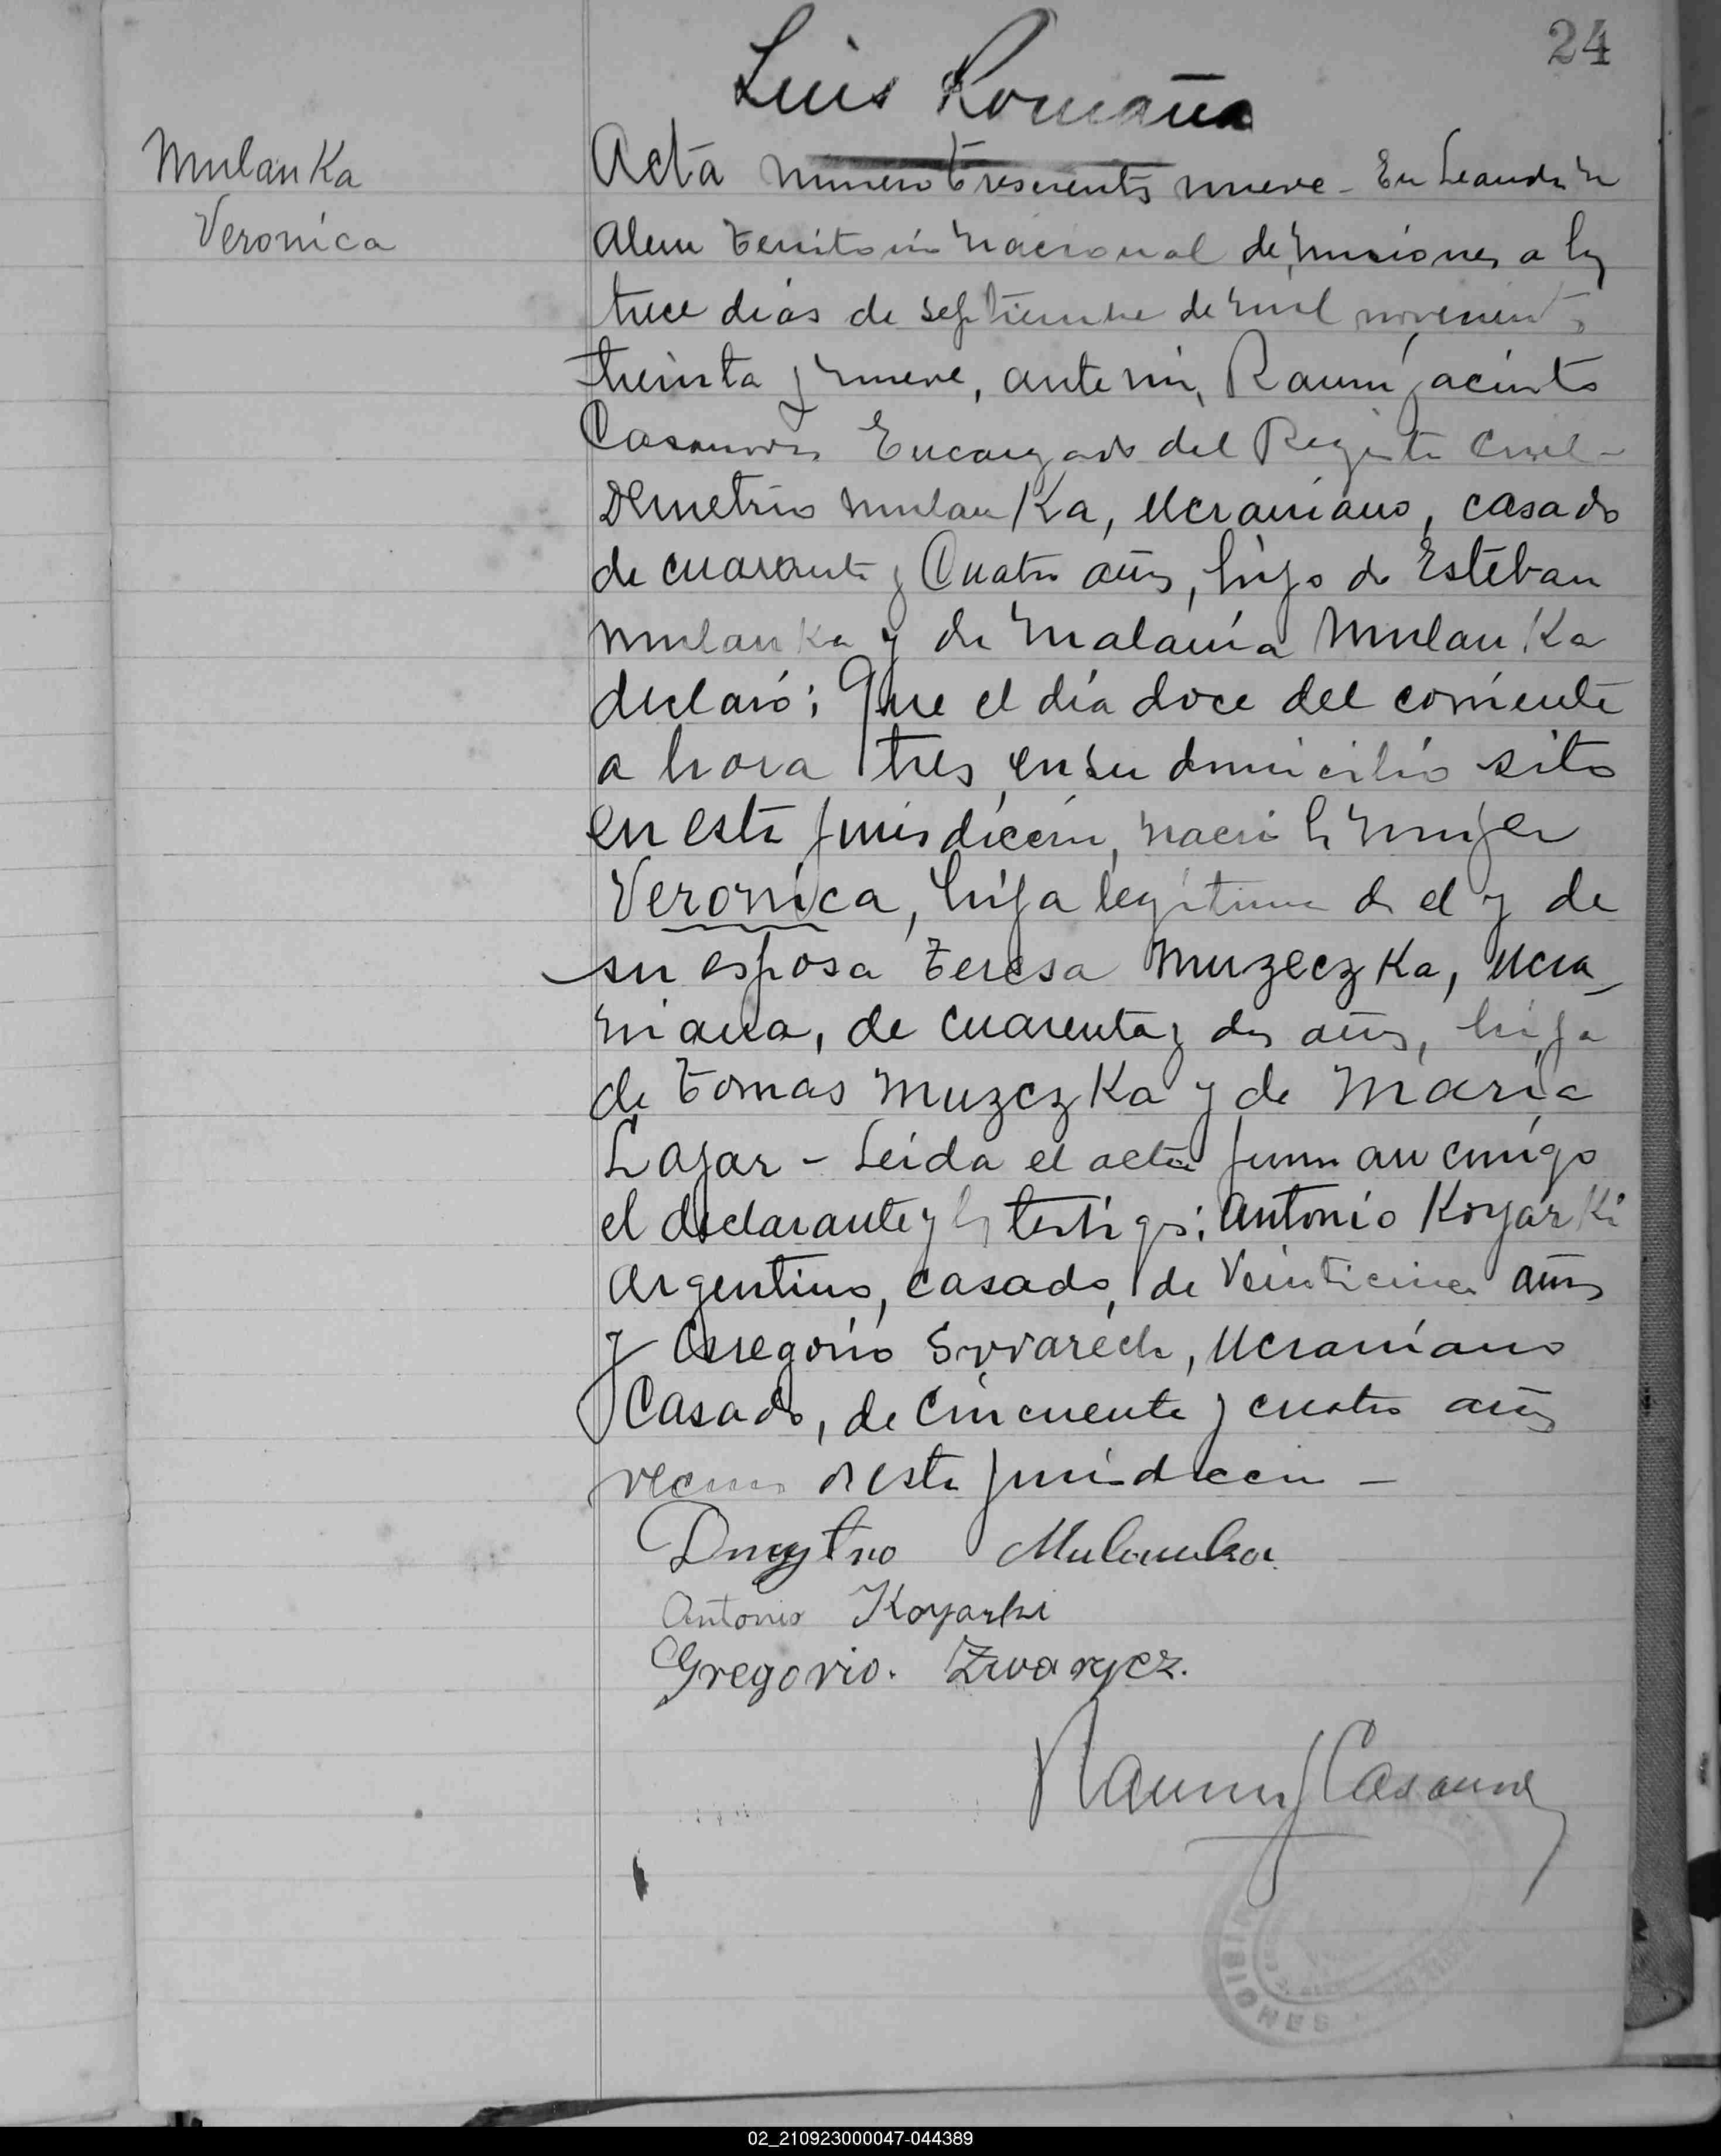 24
Luis Romaña
Mulanka
Veronica
Acta numero trescientos nueve - En Leandro N
Alem Territorio Nacional de Misiones a los
trece dias de septiembre de mil novecientos
treinta y nueve, ante mi, Ramn Jacinto
Encargado del Registro Civil -
Demetrio Mulanka, Ucraniano, casado
de cuarenta y Cuatro años, hijo de Esteban
Mulanka y de Malania Mulanka
declaró: Que el día doce del corriente
a hora tres, en su domicilio sito
en esta jurisdiccion, nacio la mujer
Veronica, hija legitima de el y de
su esposa Teresa Muzeczka, Ucra
niana, de cuarenta y dos años, hija
de Tomas Muzczka y de María
Lajar - Leida el acta firman conmigo
el declarante y los testigos: Antonio Koyarki
Argentino, casado, de Veinticinco años
y Gregorio Swarech, Ucraniano
Casado, de Cincuenta y cuatro años
vecinos de esta jurisdiccion -
Dmytro Mulanka.
Antonio Koyarki
Gregorio. Zwarycz.
MISIONES
02_210923000047-044389